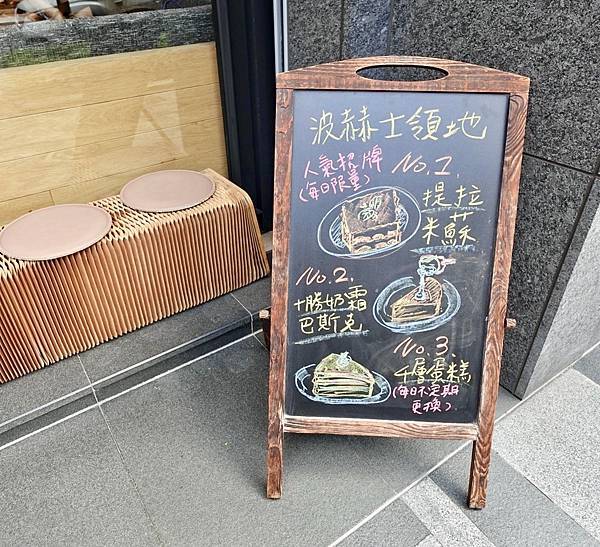 波赫士領地
人氣招牌
(每日限量)
No.1.
提拉
米蘇
No.2.
十勝奶霜
巴斯克
No.3.
千層蛋糕
(每日不定期
更換)